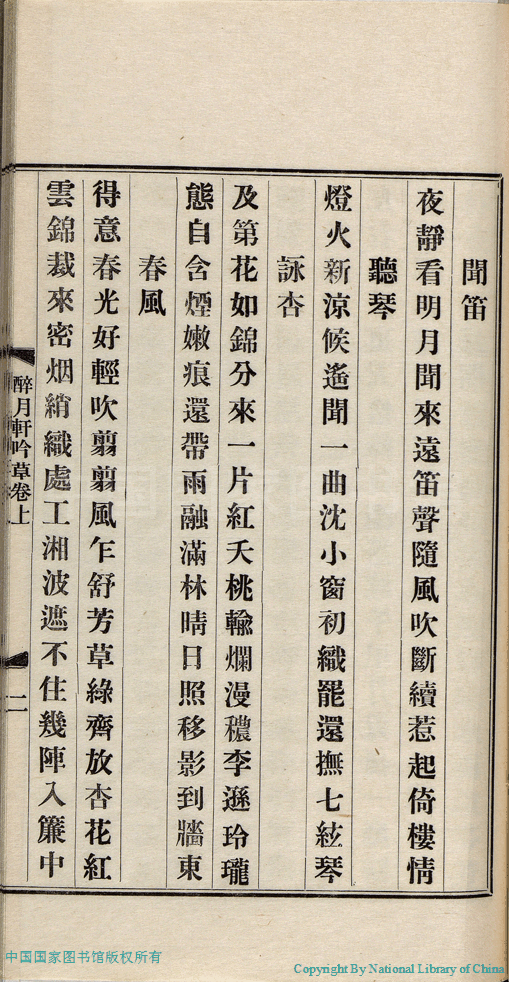 聞笛
夜靜看明月聞來遠笛聲隨風吹斷續惹起倚樓情
聽琴
燈火新涼候遙聞一曲沈小窗初織罷還撫七絃琴
詠杏
及第花如錦分來一片紅夭桃輸爛漫穠李遜玲瓏
態自含煙嫩痕還帶雨融滿林晴日照移影到牆東
春風
得意春光好輕吹翦翦風乍舒芳草綠齊放杏花紅
雲錦裁來密烟綃織處工湘波遮不住幾陣入簾中
醉月軒吟草卷上
二
中国国家图书馆版权所有
Copyright By National Library of China